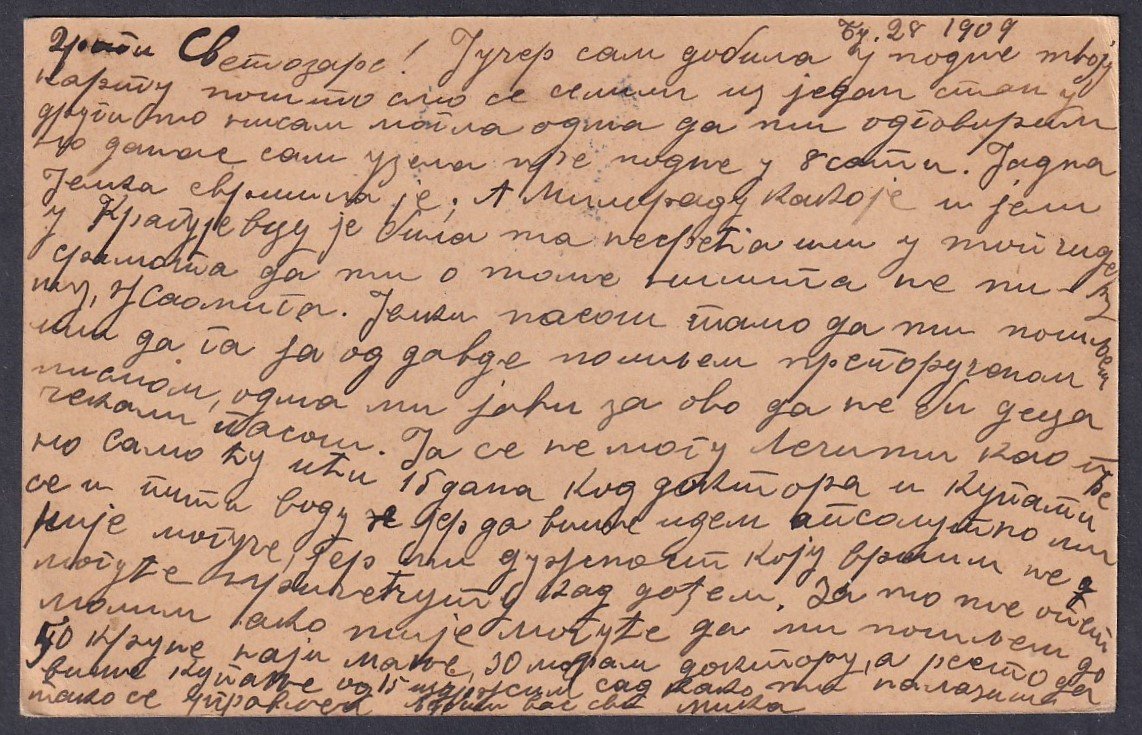 28 1909
Светозаре! Јучер сам добила у подне твоју
карту пошто смо се селили из једап стап у
други то нисам могла одма да ти одговорим
данас сам узела пре подне у 8 сати. Јадна
Јелка свршила је. А Милораду како је и јели
у Крагујевцу је била та несрећа или у
срамота да ти о томе ништа не пи-
Јелки пасош тамо да ти пошљем
или да га ја од давде пошљем препорученом
писмом, одма ми јави за ово да не би деца
чекали пасош. Ја се не могу лечити као пре
но само ћу ићи 15 дана код доктора и купати
се и пити воду јер да више идем апсолутно ми
није могуће, јер ми дужност коју вршим не
кад дођем. За то те опет
молим ако није могуће да ми пошљеш до
50 круне најмање, 30 морам доктору, а
више купање од 15 сад како ти налазиш да
тако се вас све Мика